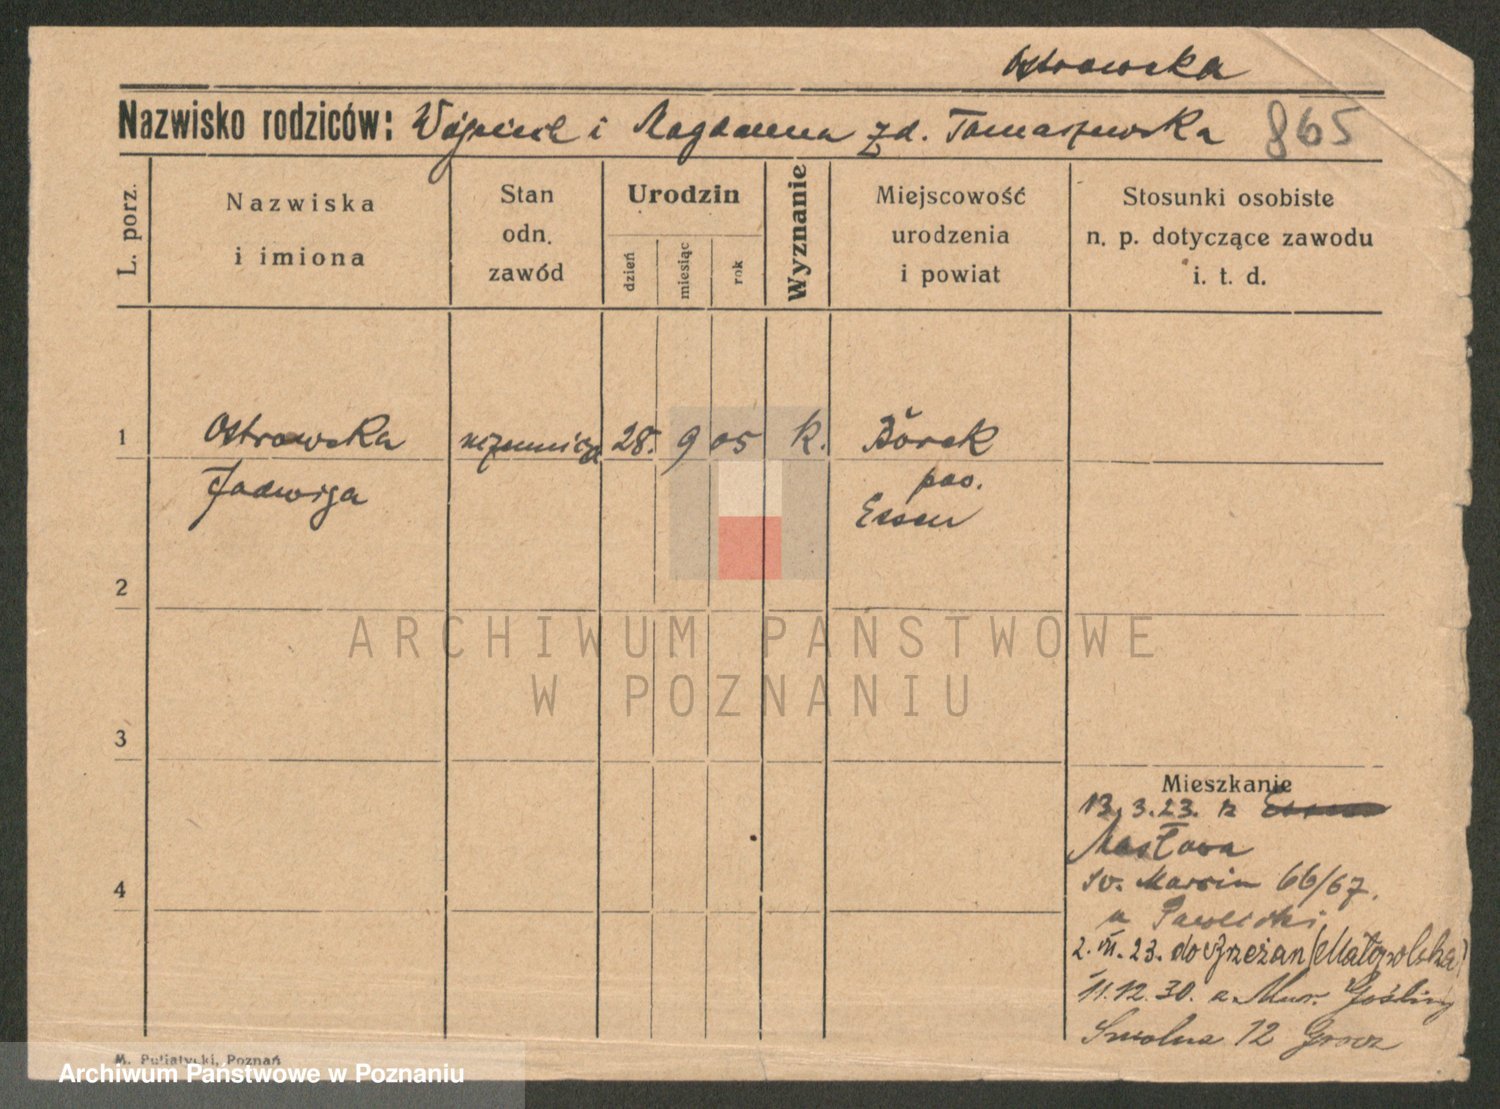 Ostrowska
Nazwisko rodziców: Wojciech i Magdalena zd. Tomaszewska 865
L. porz.
Nazwiska
i imiona
Stan
odn.
zawód
Urodzin
dzień
miesiąc
rok
Wyznanie
Miejscowość
urodzenia
i powiat
Stosunki osobiste
n. p. dotyczące zawodu
i. t. d.
1 Ostrowska 28. 9 05 k. Borek
Jadwiga pow.
Essen
2
ARCHIWUM PAŃSTWOWE
W POZNANIU
3
Mieszkanie
13.3.23. z Essen
Masłowa
św. Marcin 66/67.
u Pawlicki
2.VII.23. do Brzeżan (Małopolska)
4
11.12.30. z Mur. Gośliny
Smolna 12
M. Putiatycki, Poznań
Archiwum Państwowe w Poznaniu